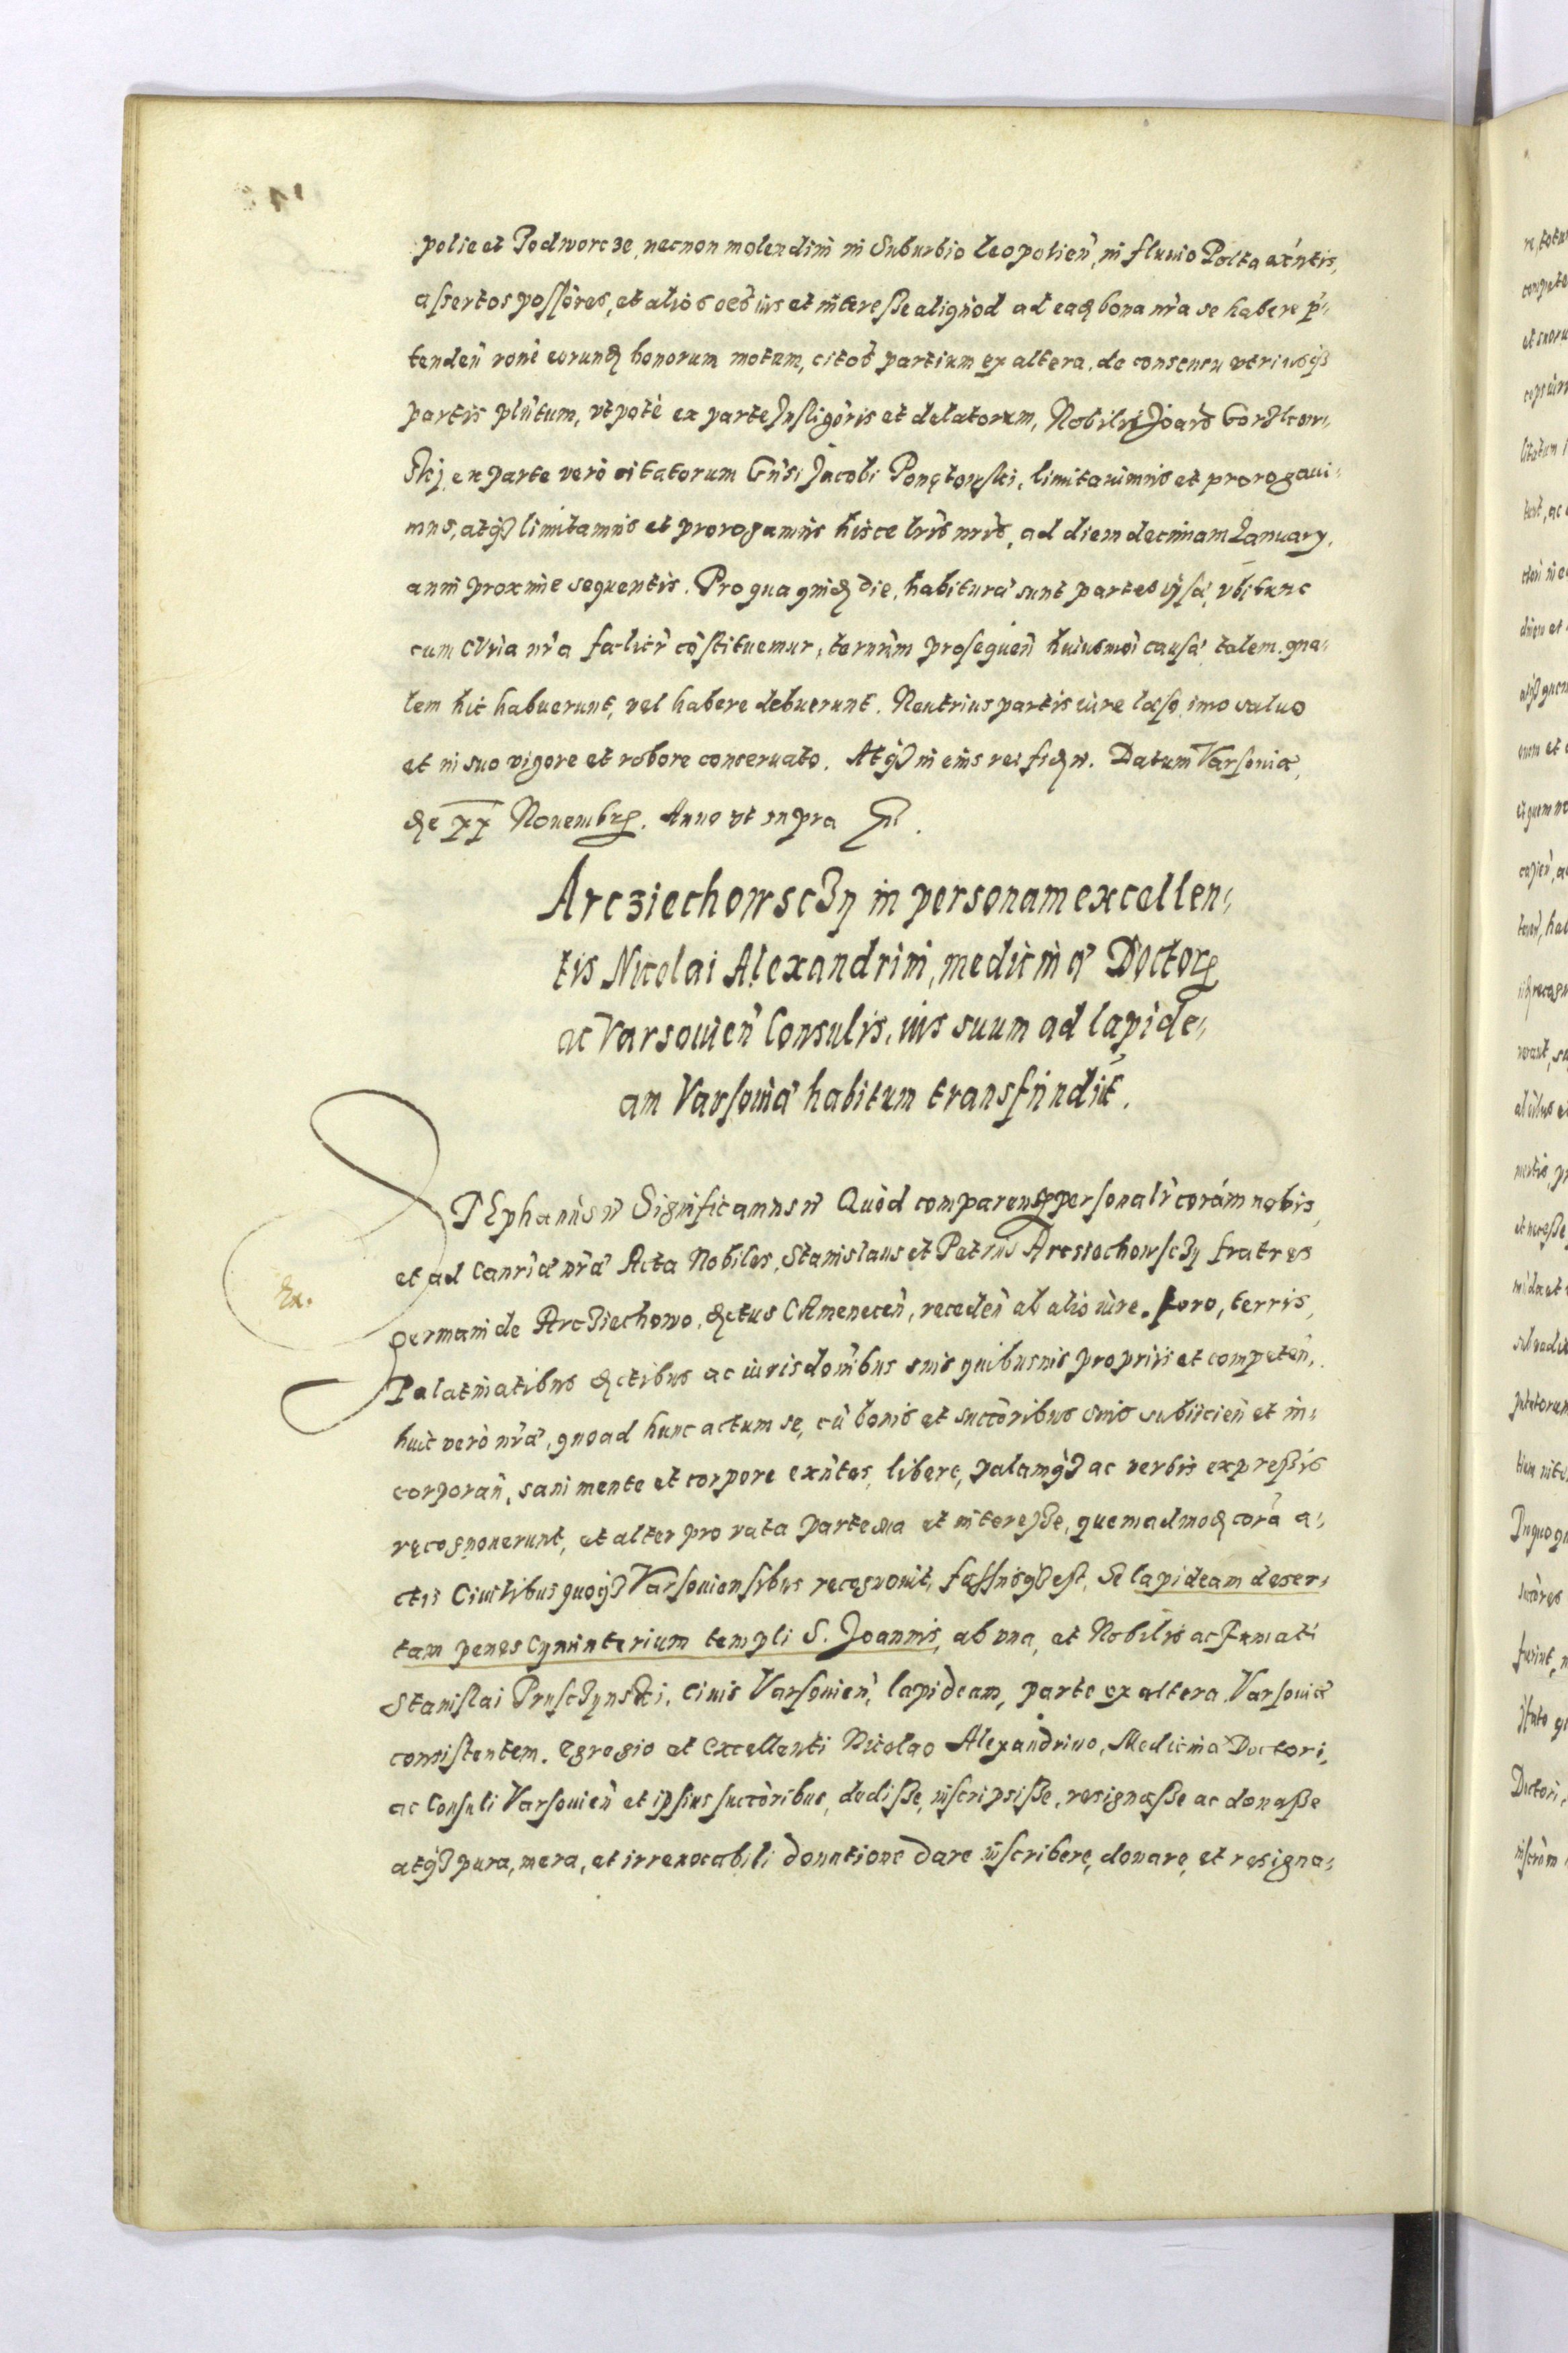 polie et Podworcze, necnon molendini in Suburbio Leopolien̄, in fluuio Polta exn̄tis,
assertos poss̄ores, et alios oēs ius et interesse aliquod ad eadę bona nr̄a se habere p̄-
tenden̄ rōne eorundę bonorum motam, citōs partium ex altera, de consensu vtriusq3
partis pn̄tum, vtpotè ex parte Instigōris et delatorum, Nobilis Joān̄s Gorzkow-
skj, ex parte verò citatorum Gn̄si Jacobi Ponętowski, limitauimus et prorogaui-
mus, atq3 limitamus et prorogamus hisce lr̄is nr̄is, ad diem decimam January,
anni proxime sequentis. Pro qua quidę die, habituræ sunt partes ipsæ, vbi tunc
cum Curia nr̄a fœlicr̄ cōstituemur, ternūm prosequen̄ huiusmōi causæ talem, qua-
lem hic habuerunt, vel habere debuerunt. Neutrius partis iure læso, imo saluo
et in suo vigore et robore conseruato. Atq3 in eius rei fidę n̄. Datum Varsouiæ,
dię xx Nouembrę. Anno vt supra
Arcziechowsczy in personam excellen-
tis Nicolai Alexandrini, medicinæ Doctorę
ac Varsouien̄ Consulis, ius suum ad lapide-
am Varsouiæ habitum transfundūt.
STEphanus n̄ Significamus n̄ Quòd comparentę personalr̄ coràm nobis,
et ad Canr̄iæ nr̄æ Acta Nobiles, Stanislaus et Petrus Arcziechowsczy fratres
germani de Arcziechowo, dictus CAmenecen̄, receden̄ ab alio iùre, foro, terris,
Palatinatibus dictibus ac iurisdōnibus suis quibusuis proprijs et competen̄,
huic verò nr̄æ, quoad hunc actum se, cū bonis et succōribus suis subijcien̄ et in-
corporan̄, sani mente et corpore exn̄tes, libere, palamq3 ac verbis expressis
recognouerunt, et alter pro rata parte sua et interesse, quemadmodę corā a-
ctis Ciuilibus quoq3 Varsouiensibus recognouit, fassusq3 est, Se lapideam deser-
tam penes Cyminterium templi S. Joannis, ab vna, et Nobilis ac Famati
Stanislai Prusczynski, Ciuis Varsouien̄, lapideam, parte ex altera, Varsouiæ
consistentem. Egregio et Excellenti Nicolao Alexandrino, Medicinæ Doctori,
ac Consuli Varsouien̄ et ipsius succōribus, dedisse, inscripsisse, resignasse ac donasse
atq3 pura, mera, et irreuocabili donatione dare inscribere, donare, et resigna-